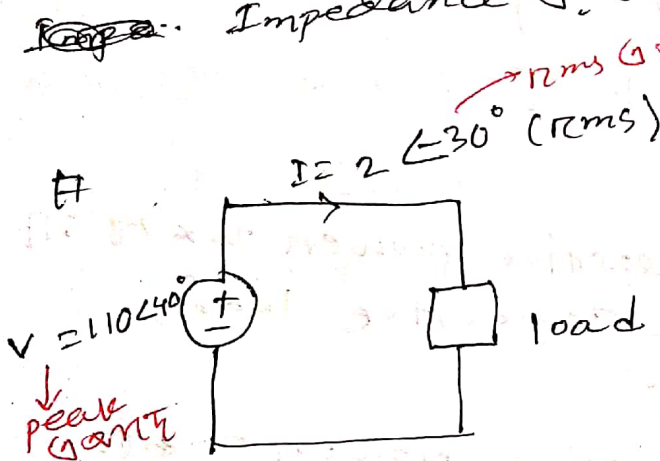 Impedance
rms
I = 2 ∠-30° (rms)
#
V = 110∠40°
+
-
load
peak